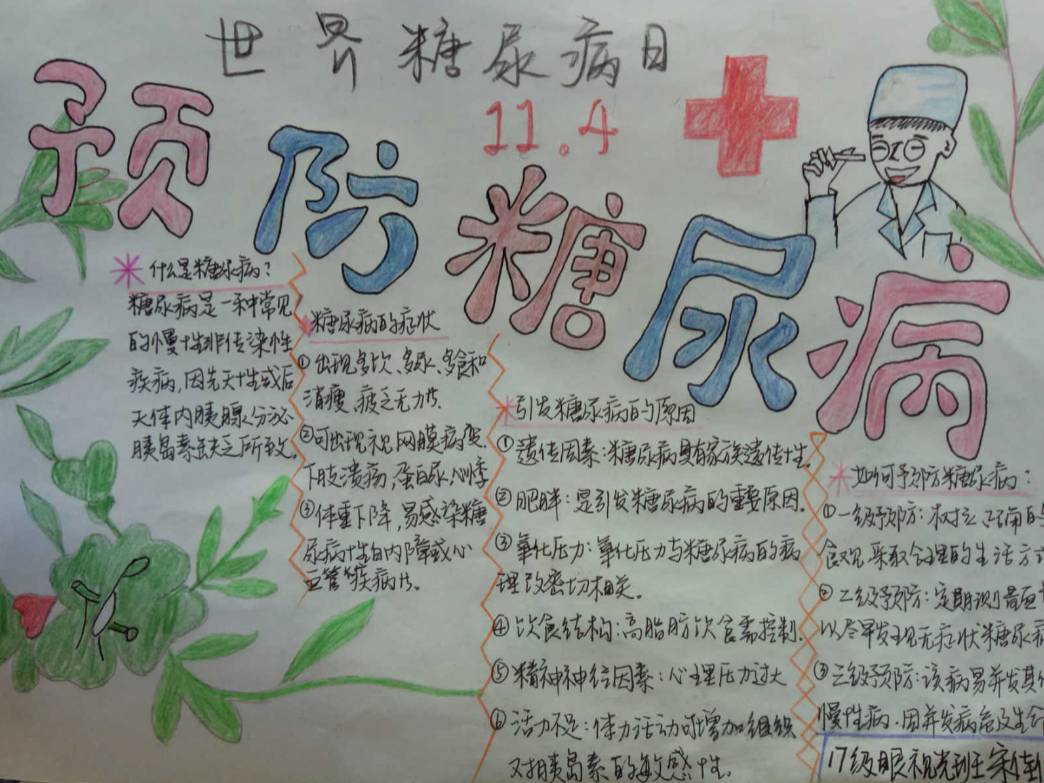 世界糖尿病日
11.4
预防糖尿病
什么是糖尿病?
糖尿病是一种常见
的慢性非传染性
疾病,因先天性或后
天体内胰腺分泌
胰岛素缺乏所致。
糖尿病的症状
①出现多饮、多尿、多食和
消瘦、疲乏无力状.
②可出现视网膜病变.
下肢溃疡,蛋白尿,心悸
③体重下降,易感染糖
尿病性白内障或心
血管疾病片。
引发糖尿病的原因
①遗传因素:糖尿病具有家族遗传性.
②肥胖:是引发糖尿病的重要原因.
③氧化压力:氧化压力与糖尿病的病
理改密切相关。
④饮食结构:高脂肪饮食需控制.
⑤精神神经因素:心理压力过大
⑥活力不足:体力活动可增加组织
对胰岛素的敏感性.
如何予防糖尿病:
①一级预防:树立正确的
食观采取合理的生活方式
②二级预防:定期测量血
以尽早发现无症状糖尿病
③三级预防:该病易并发其他
慢性病,因并发病危及生命
17级眼视光班